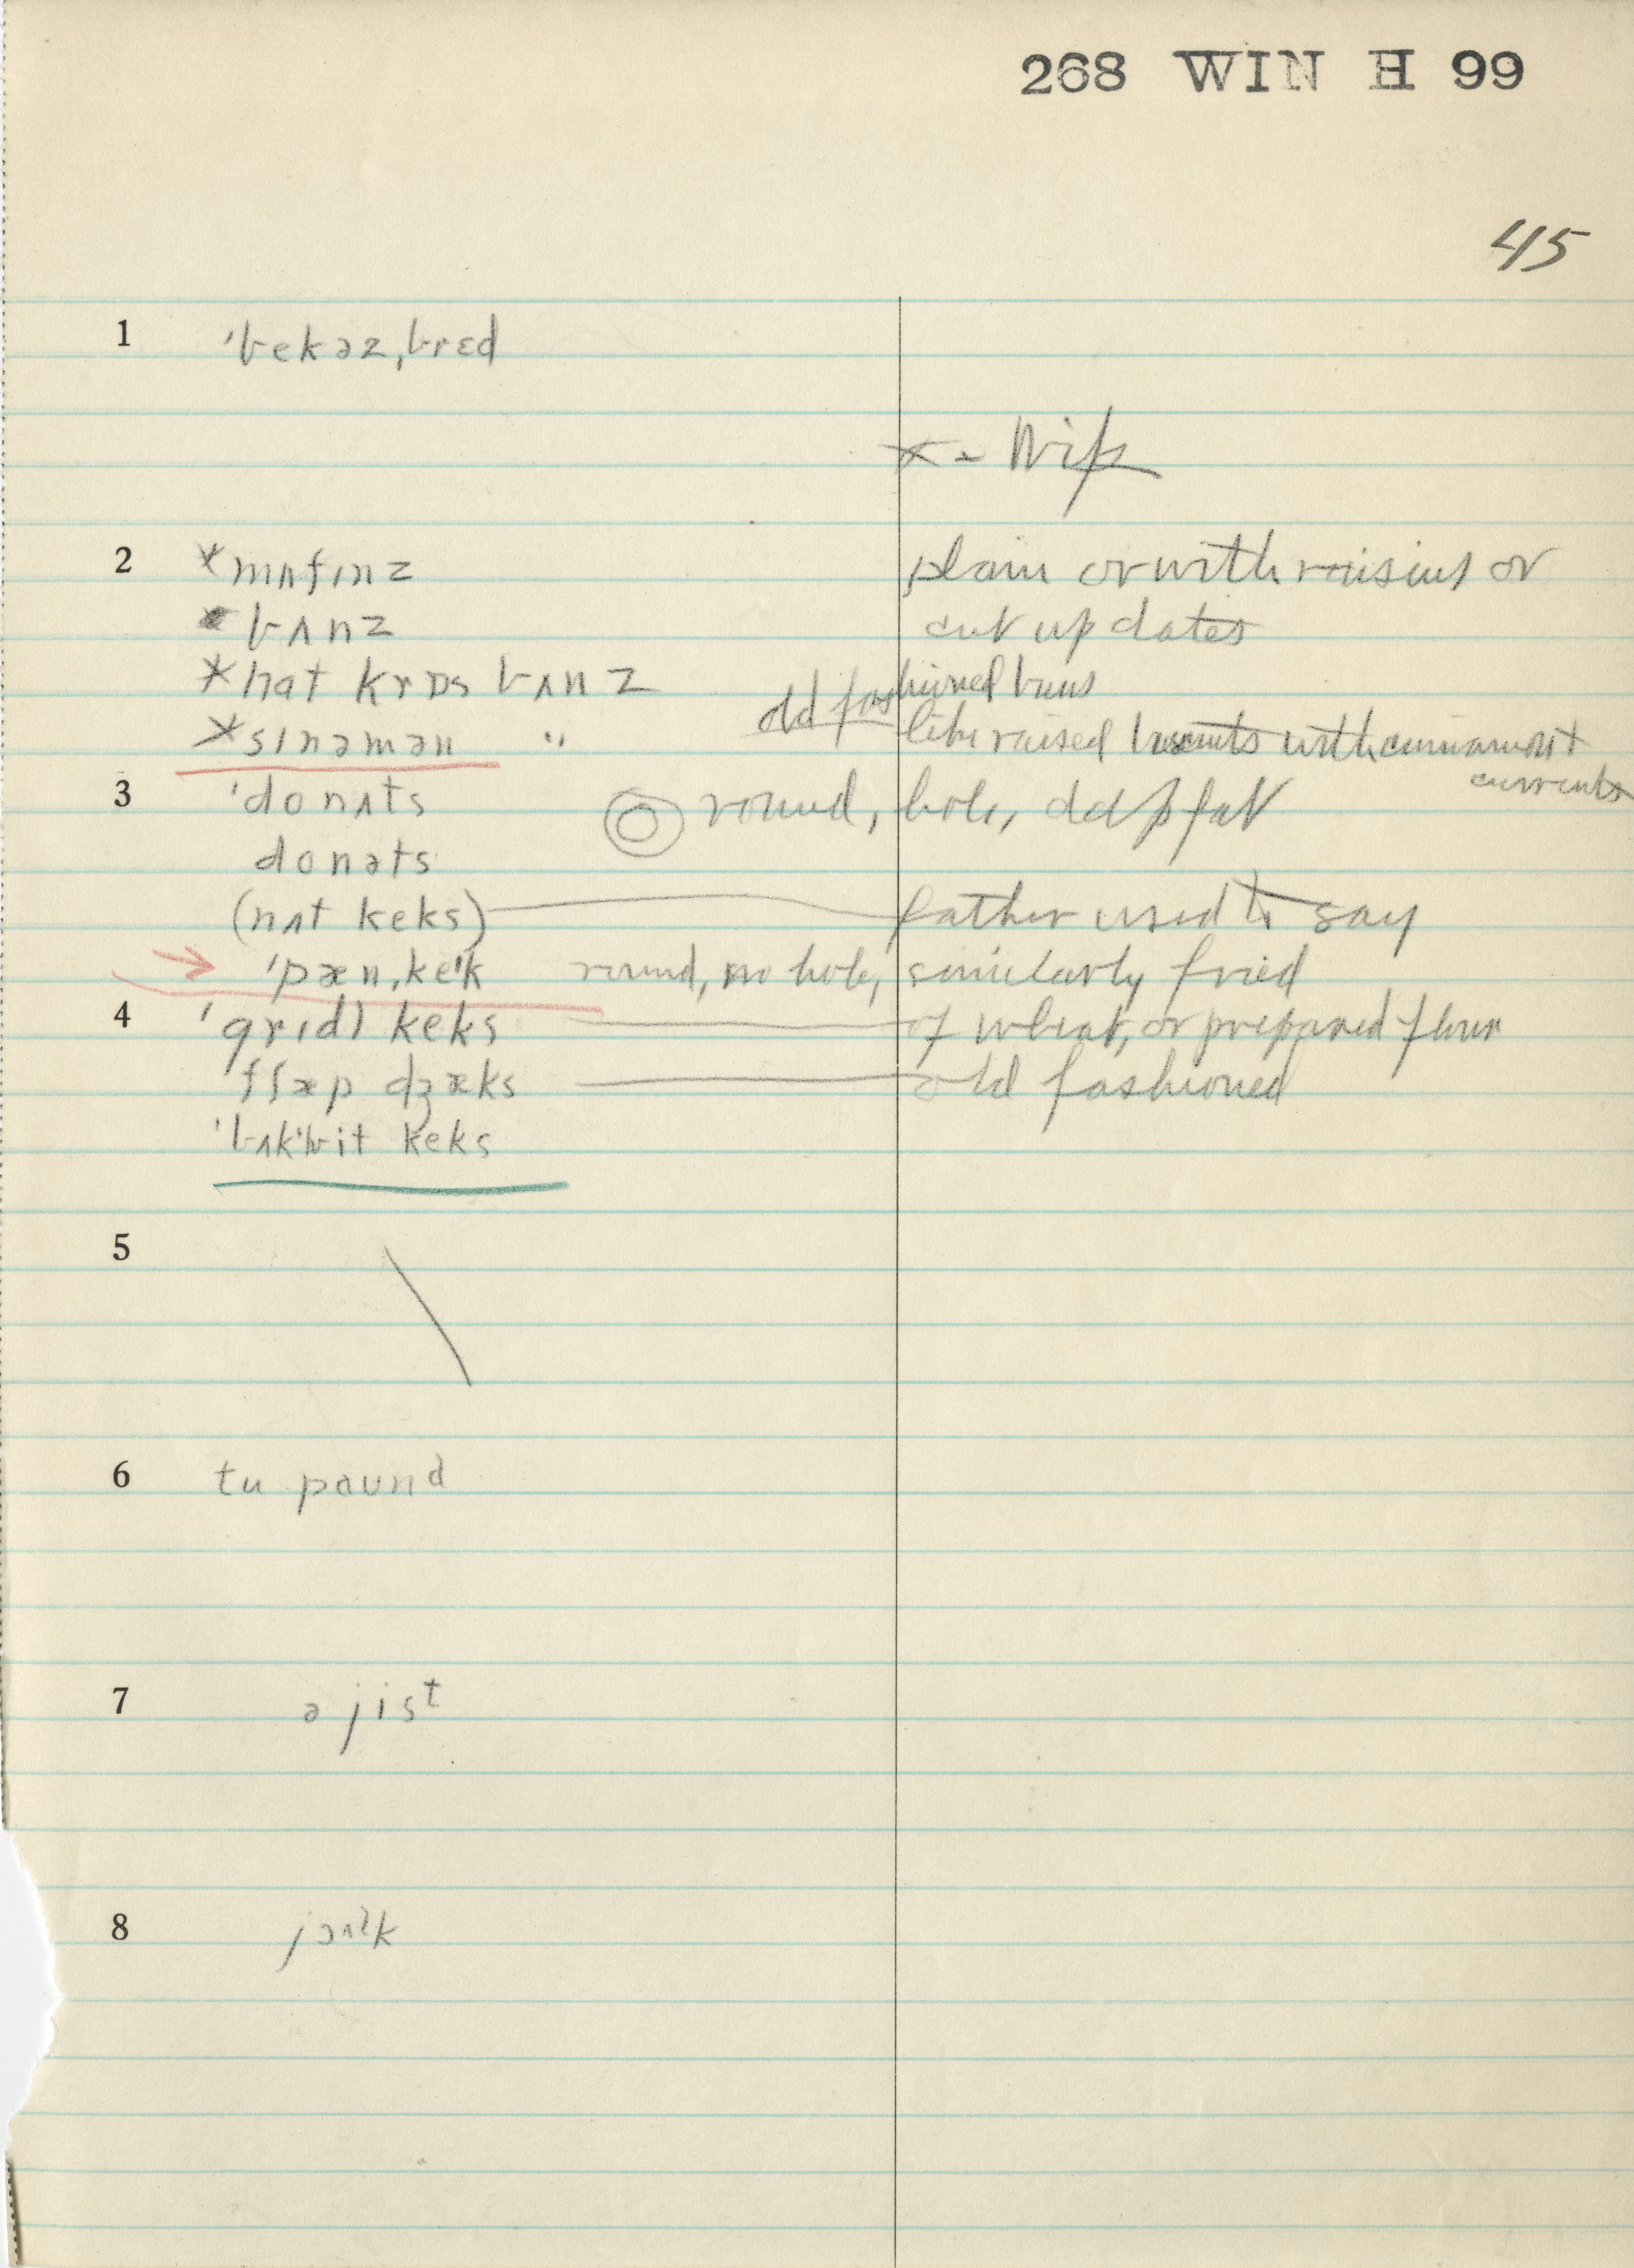 268 WIN H 99
45
1 ˈbekəz,brɛd
x = Wife
2 *mʌfɪnz plain or with raisins or
*bʌnz cut up dates
*hat krɒs bʌnz old fashioned buns
*sɪnəmən " like raised biscuits with cinnamon +
currents
3 ˈdonʌts round, hole, deep fat
donəts
(nʌt keks) father used to say
ˈpæn,keˈk round, no hole, similarly fried
4 ˈgrɪdl keks of wheat, or prepared flour
ˈflæp dʒæks old fashioned
ˈbʌkˈʍit keks
5
6 tu paund
7 ə jist
8